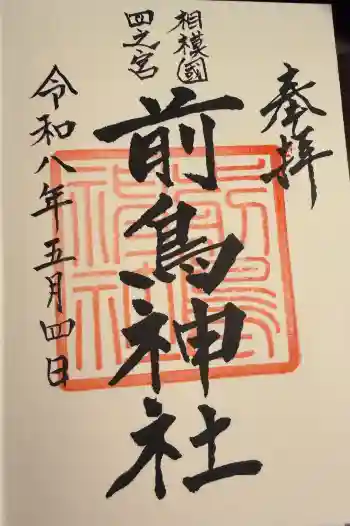 奉拝
相模國
四之宮
前鳥神社
令和八年五月四日
前鳥
神社